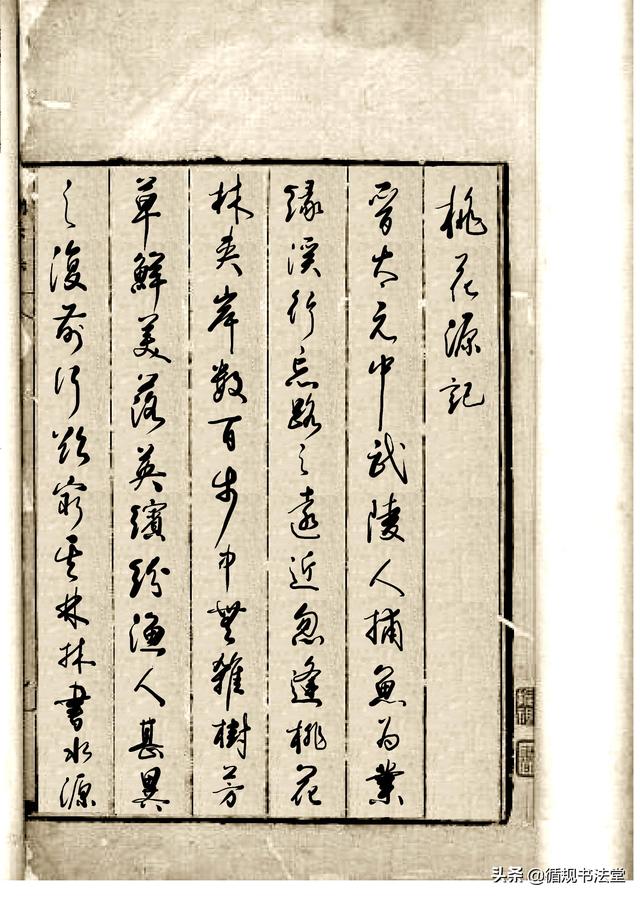 桃花源記
晉太元中武陵人捕魚為業
緣溪行忘路之遠近忽逢桃花
林夾岸數百步中無雜樹芳
草鮮美落英繽紛漁人甚異
之復前行欲窮其林林盡水源
头条 @循规书法堂